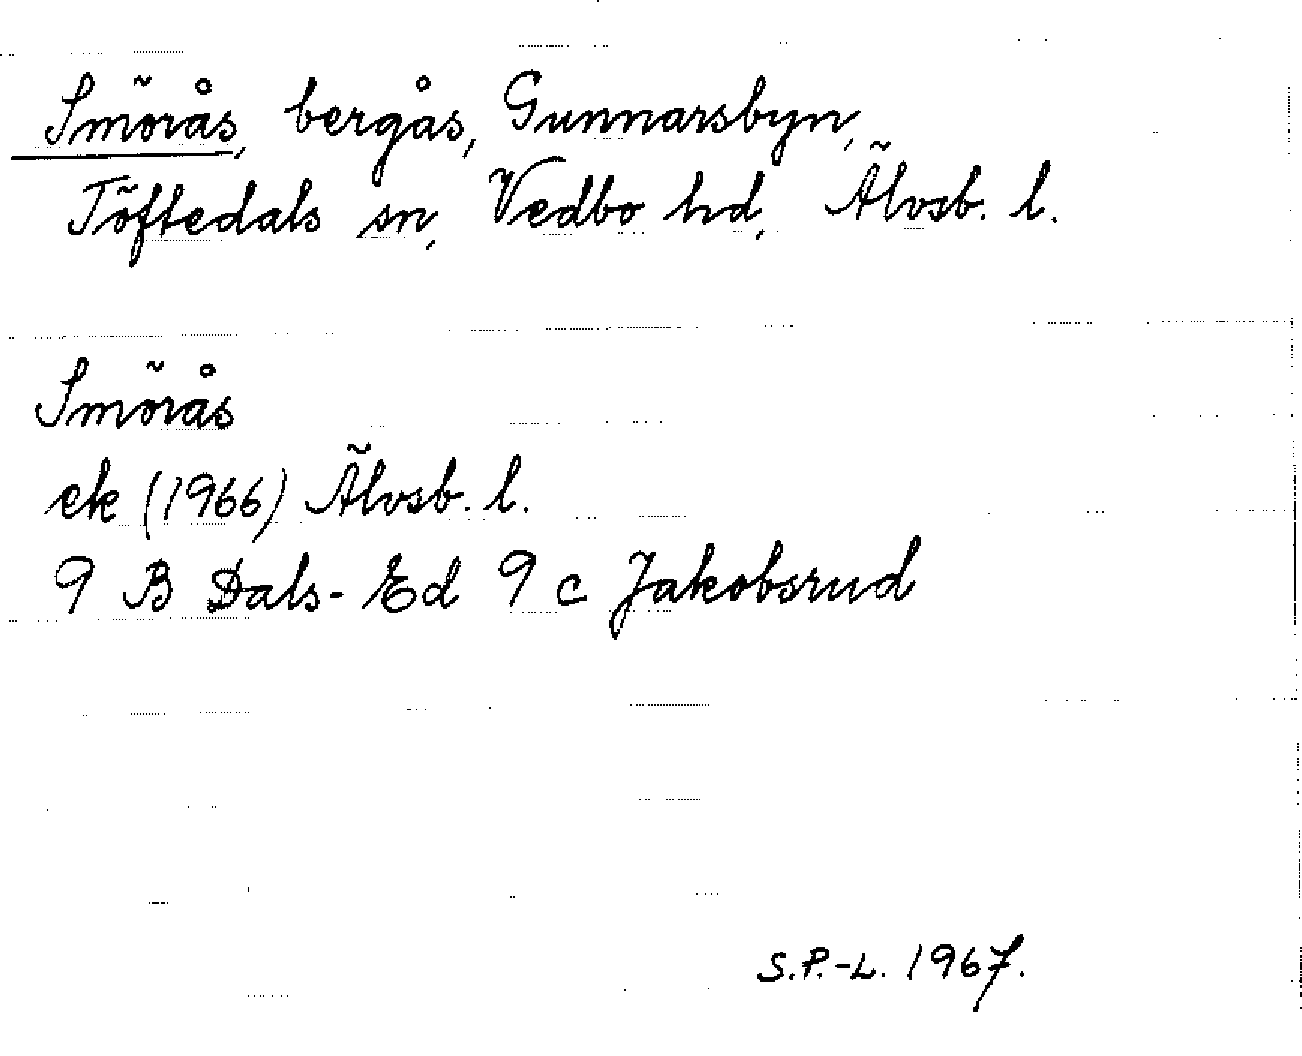 Smörås, bergås, Gunnarsbyn,
Töftedals sn, Vedbo hd, Älvsb. l.
Smörås
ek (1966) Älvsb. l.
9 B Dals-Ed 9 c Jakobsrud
S.P.-L. 1967.